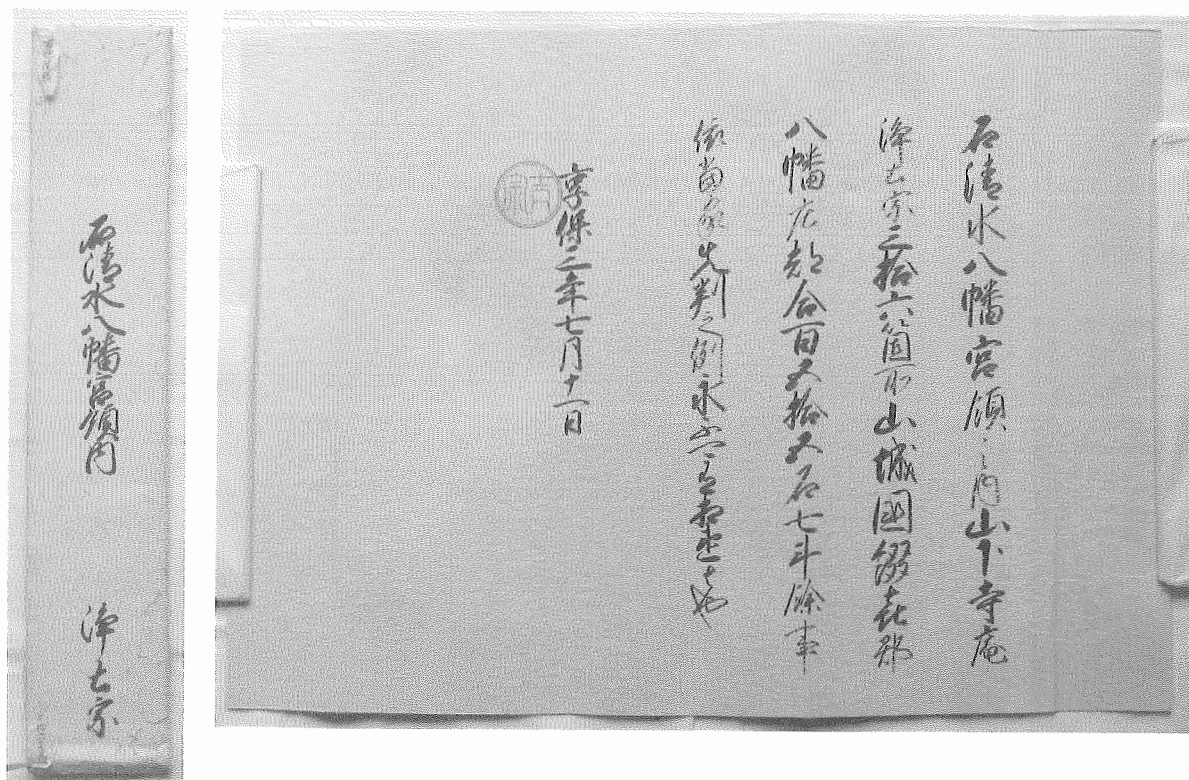 石清水八幡宮領之内山下寺庵
浄土宗三拾六箇所山城國綴喜郡
八幡庄都合百五拾五石七斗餘事
依當家先判之例永不可有相違者也
享保三年七月十一日
石清水八幡宮領内 浄土宗